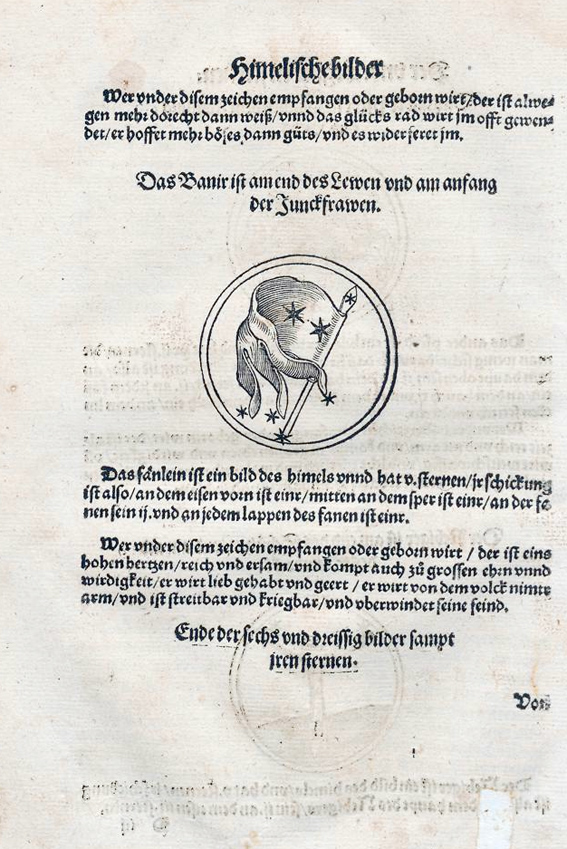 Himelische bilder
Wer vnder disem zeichen empfangen oder geborn wirt/der ist alwe⸗
gen mehr dorecht dann weiß/vnnd das glücks rad wirt jm offt gewen⸗
det/er hoffet mehr böses dann güts/vnd es widerferet jm.
Das Banir ist am end des Lewen vnd am anfang
der Junckfrawen.
Das fänlein ist ein bild des himels vnnd hat v.sternen/jr schickung
ist also/an dem eisen vorn ist einr/mitten an dem sper ist einr/an der fa
nen sein ij.vnd an jedem lappen des fanen ist einr.
Wer vnder disem zeichen empfangen oder geborn wirt / der ist eins
hohen hertzen/reich vnd ersam/vnd kompt auch zů grossen ehrn vnnd
wirdigkeit/er wirt lieb gehabt vnd geert / er wirt von dem volck nimmr
arm/vnd ist streitbar vnd kriegbar/vnd vberwindet seine feind.
Ende der sechs vnd dreissig bilder sampt
jren sternen.
Von